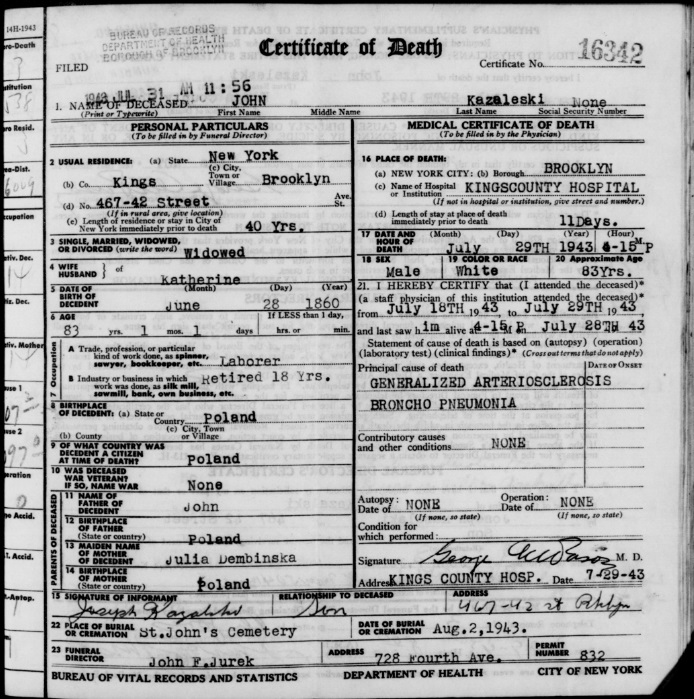 14H-1943
BUREAU OF RECORDS
DEPARTMENT OF HEALTH
BOROUGH OF BROOKLYN
Certificate of Death
Certificate No. 16342
FILED
1943 JUL 31 AM 11:56
1. NAME OF DECEASED JOHN Kazaleski None
(Print or Typewrite) First Name Middle Name Last Name Social Security Number
PERSONAL PARTICULARS
(To be filled in by Funeral Director)
2 USUAL RESIDENCE: (a) State New York
(b) Co. Kings (c) City, Town or Village Brooklyn
(d) No. 467-42 Street Ave. St.
(If in rural area, give location)
(e) Length of residence or stay in City of New York immediately prior to death 40 Yrs.
3 SINGLE, MARRIED, WIDOWED, OR DIVORCED (write the word) Widowed
4 WIFE HUSBAND } of Katherine
5 DATE OF BIRTH OF DECEDENT (Month) (Day) (Year)
June 28 1860
6 AGE If LESS than 1 day,
83 yrs. 1 mos. 1 days hrs. or min.
7 Occupation
A Trade, profession, or particular kind of work done, as spinner, sawyer, bookkeeper, etc. Laborer
B Industry or business in which work was done, as silk mill, sawmill, bank, own business, etc. Retired 18 Yrs.
8 BIRTHPLACE OF DECEDENT: (a) State or Country Poland
(b) County (c) City, Town or Village
9 OF WHAT COUNTRY WAS DECEDENT A CITIZEN AT TIME OF DEATH? Poland
10 WAS DECEASED WAR VETERAN? IF SO, NAME WAR None
PARENTS OF DECEASED
11 NAME OF FATHER OF DECEDENT John
12 BIRTHPLACE OF FATHER (State or country) Poland
13 MAIDEN NAME OF MOTHER OF DECEDENT Julia Dembinska
14 BIRTHPLACE OF MOTHER (State or country) Poland
MEDICAL CERTIFICATE OF DEATH
(To be filled in by the Physician)
16 PLACE OF DEATH:
(a) NEW YORK CITY: (b) Borough BROOKLYN
(c) Name of Hospital or Institution KINGSCOUNTY HOSPITAL
(If not in hospital or institution, give street and number.)
(d) Length of stay at place of death immediately prior to death 11Days.
17 DATE AND HOUR OF DEATH (Month) (Day) (Year) (Hour)
July 29TH 1943 4-15 M P
18 SEX 19 COLOR OR RACE 20 Approximate Age
Male White 83Yrs.
21. I HEREBY CERTIFY that (I attended the deceased)*
(a staff physician of this institution attended the deceased)*
from July 18TH 1943 to July 29TH 1943
and last saw him alive at 4-15 M P. July 28TH 43
Statement of cause of death is based on (autopsy) (operation)
(laboratory test) (clinical findings)* (Cross out terms that do not apply)
Principal cause of death DATE OF ONSET
GENERALIZED ARTERIOSCLEROSIS
BRONCHO PNEUMONIA
Contributory causes and other conditions NONE
Autopsy: Date of NONE Operation: Date of NONE
(If none, so state) (If none, so state)
Condition for which performed:
Signature George M. D.
Address KINGS COUNTY HOSP. Date 7-29-43
15 SIGNATURE OF INFORMANT RELATIONSHIP TO DECEASED ADDRESS
Joseph Kazaleski Son 467-42 st
22 PLACE OF BURIAL OR CREMATION St.John's Cemetery DATE OF BURIAL OR CREMATION Aug.2,1943.
23 FUNERAL DIRECTOR John F.Jurek ADDRESS 728 Fourth Ave. PERMIT NUMBER 832
BUREAU OF VITAL RECORDS AND STATISTICS DEPARTMENT OF HEALTH CITY OF NEW YORK